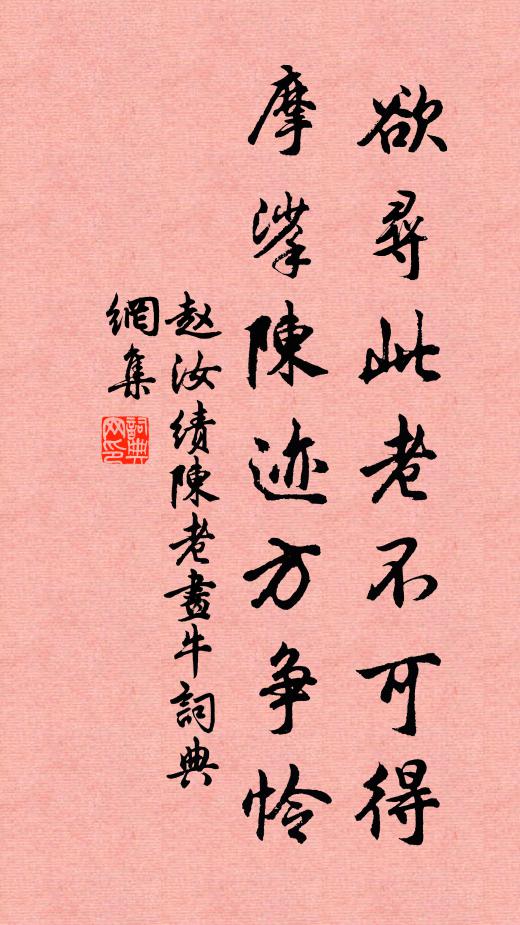 欲尋此老不可得
摩挲陳迹方争怜
赵汝績陳老畫牛詞典
網集
詞典网印